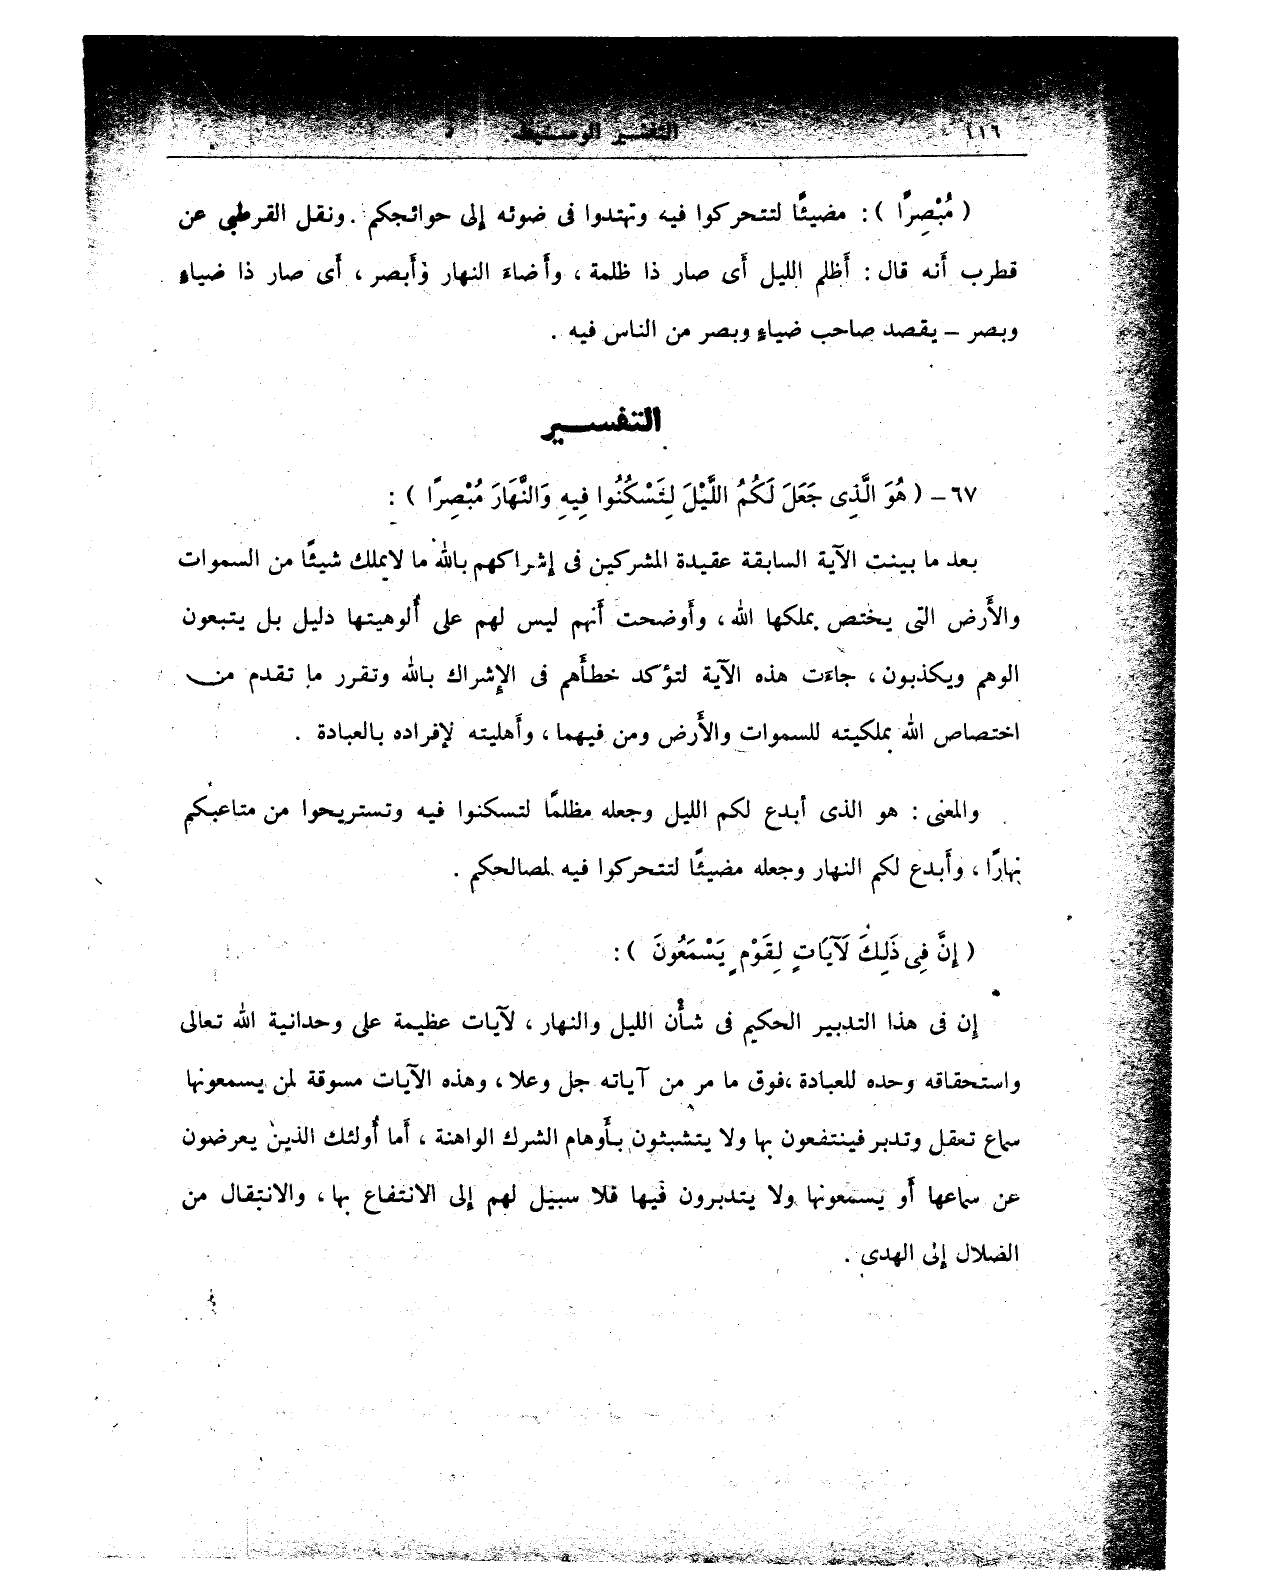 ١١٦ التفسير الوسيط
( مُبْصِرًا ) : مضيئًا لتتحركوا فيه وتهتدوا فى ضوئه إلى حوائجكم . ونقل القرطبى عن
قطرب أنه قال : أَظلم الليل أَى صار ذا ظلمة ، وأَضاءَ النهار وأَبصر ، أَى صار ذا ضياءٍ
وبصر – يقصد صاحب ضياءٍ وبصر من الناس فيه .
التفسير
٦٧ – ( هُوَ الَّذِى جَعَلَ لَكُمُ اللَّيْلَ لِتَسْكُنُوا فِيهِ وَالنَّهَارَ مُبْصِرًا ) :
بعد ما بينت الآية السابقة عقيدة المشركين فى إشراكهم بالله ما لا يملك شيئًا من السموات
والأَرض التى يختص بملكها الله ، وأَوضحت أَنهم ليس لهم على أُلوهيتها دليل بل يتبعون
الوهم ويكذبون ، جاءَت هذه الآية لتؤكد خطأَهم فى الإِشراك بالله وتقرر ما تقدم من
اختصاص الله بملكيته للسموات والأَرض ومن فيهما ، وأَهليته لإفراده بالعبادة .
والمعنى : هو الذى أبدع لكم الليل وجعله مظلمًا لتسكنوا فيه وتستريحوا من متاعبكم
نهارًا ، وأَبدع لكم النهار وجعله مضيئًا لتتحركوا فيه لمصالحكم .
( إِنَّ فِى ذَلِكَ لَآيَاتٍ لِقَوْمٍ يَسْمَعُونَ ) :
إن فى هذا التدبير الحكيم فى شأْن الليل والنهار ، لآيات عظيمة على وحدانية الله تعالى
واستحقاقه وحده للعبادة ،فوق ما مر من آياته جل وعلا ، وهذه الآيات مسوقة لمن يسمعونها
سماع تعقل وتدبر فينتفعون بها ولا يتشبثون بأَوهام الشرك الواهنة ، أَما أُولئك الذين يعرضون
عن سماعها أَو يسمعونها ولا يتدبرون فيها فلا سبيل لهم إلى الانتفاع بها ، والانتقال من
الضلال إلى الهدى .